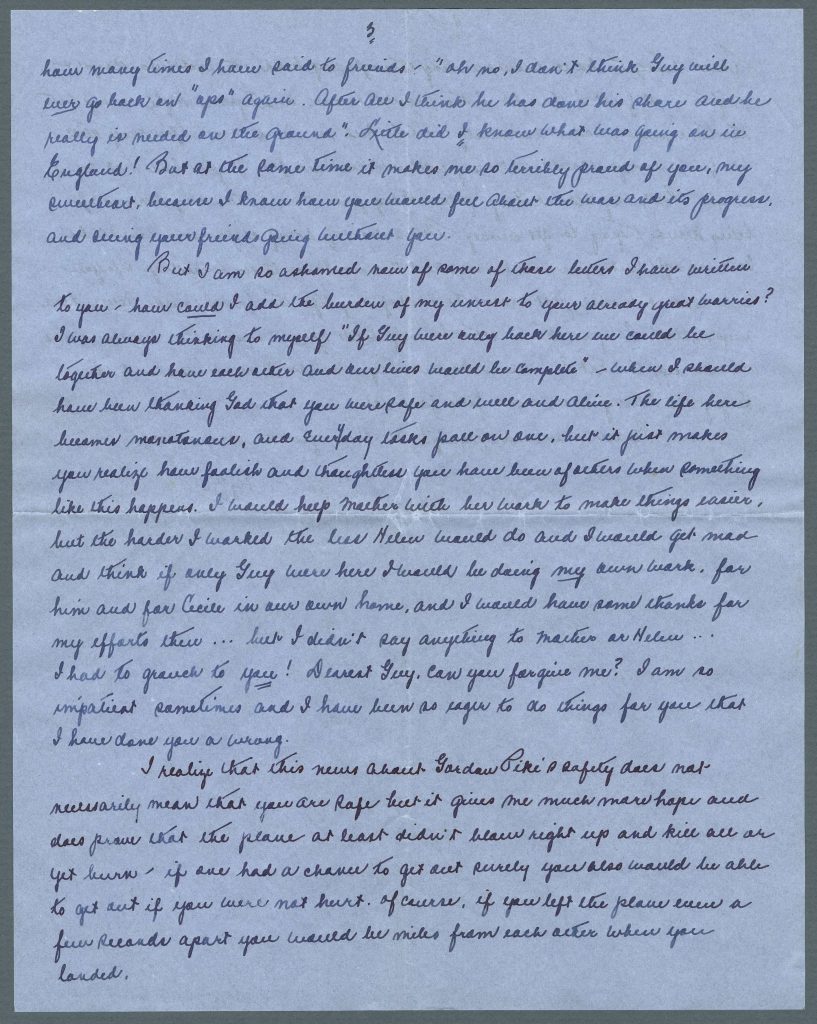 3
how many times I have said to friends - "oh no, I don't think Guy will
ever go back on "ops" again. After all I think he has done his share and he
really is needed on the ground". Little did I know what was going on in
England! But at the same time it makes me so terribly proud of you, my
sweetheart, because I know how you would feel about the war and its progress,
and seeing your friends going without you.
But I am so ashamed now of some of those letters I have written
to you - how could I add the burden of my unrest to your already great worries?
I was always thinking to myself "If Guy were only back here we could be
together and have each other and our lives would be complete" - when I should
have been thanking God that you were safe and well and alive. The life here
becomes monotonous, and everyday tasks pall on one, but it just makes
you realize how foolish and thoughtless you have been of others when something
like this happens. I would help Mother with her work to make things easier,
but the harder I worked the less Helen would do and I would get mad
and think if only Guy were here I would be doing my own work, for
him and for Cecile in our own home, and I would have some thanks for
my efforts then ... but I didn't say anything to Mother or Helen ...
I had to grouch to you! Dearest Guy, can you forgive me? I am so
impatient sometimes and I have been so eager to do things for you that
I have done you a wrong.
I realize that this news about Gordon Pike's safety does not
necessarily mean that you are safe but it gives me much more hope and
does prove that the plane at least didn't blow right up and kill all or
yet burn - if one had a chance to get out surely you also would be able
to get out if you were not hurt. Of course, if you left the plane even a
few seconds apart you would be miles from each other when you
landed.